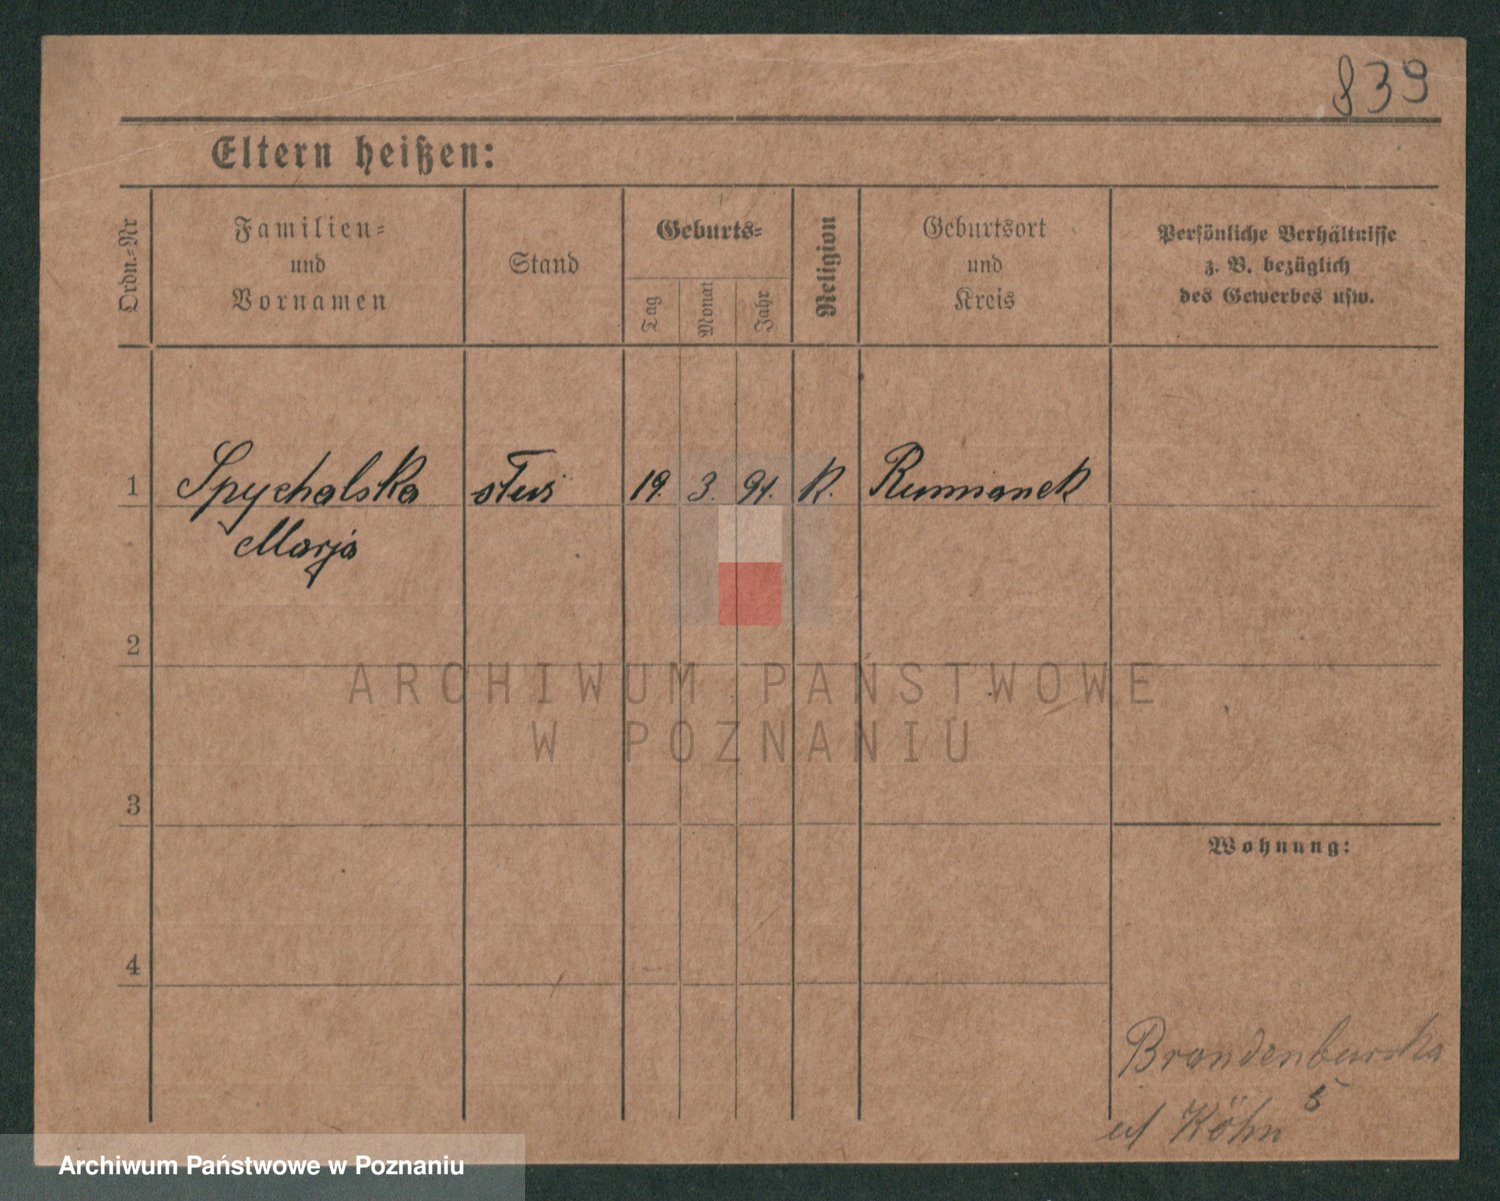 839
Eltern heißen:
Ordn.-Nr
Familien-
und
Vornamen
Stand
Geburts-
Tag
Monat
Jahr
Religion
Geburtsort
und
Kreis
Persönliche Verhältnisse
z. B. bezüglich
des Gewerbes usw.
1 Spychalska 19. 3. 91. K. Rumianek
Marja
2
ARCHIWUM PAŃSTWOWE
W POZNANIU
3
Wohnung:
4
Brandenburska
5
Köhn
Archiwum Państwowe w Poznaniu